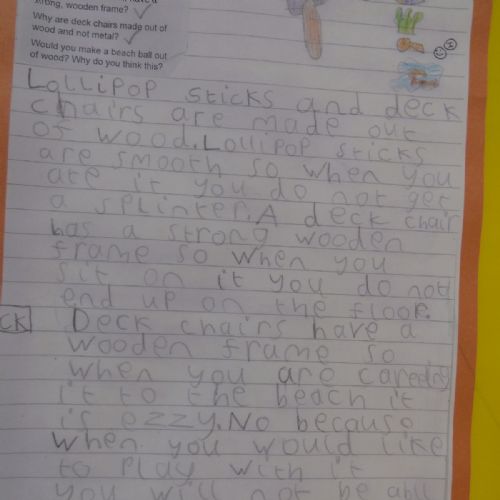 strong, wooden frame?
Why are deck chairs made out of
wood and not metal?
Would you make a beach ball out
of wood? Why do you think this?
Lollipop sticks and deck
chairs are made out
of wood. Lollipop sticks
are smooth so when you
ate it you do not get
a splinter. A deck chair
has a strong wooden
frame so when you
sit on it you do not
end up on the floor.
CK Deck chairs have a
wooden frame so
when you are careding
it to the beach it
is ezzy. No because
when you would like
to play with it
you will not be all